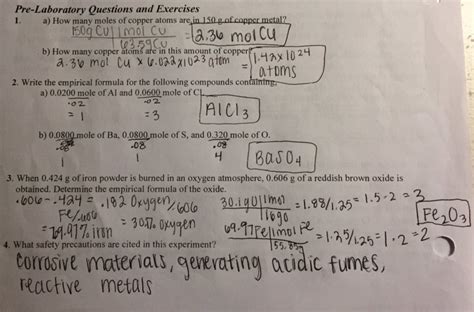 Pre-Laboratory Questions and Exercises
1. a) How many moles of copper atoms are in 150 g of copper metal?
150g Cu | 1 mol Cu = 2.36 mol Cu
63.59 Cu
b) How many copper atoms are in this amount of copper?
2.36 mol Cu x 6.022x10 23 atom = 1.42x10 24 atoms
2. Write the empirical formula for the following compounds containing,
a) 0.0200 mole of Al and 0.0600 mole of Cl.
.02 .02
= 1 = 3 AlCl3
b) 0.0800 mole of Ba, 0.0800 mole of S, and 0.320 mole of O.
.08 .08
1 1 4 BaSO4
3. When 0.424 g of iron powder is burned in an oxygen atmosphere, 0.606 g of a reddish brown oxide is
obtained. Determine the empirical formula of the oxide.
.606 - .424 = .182 Oxygen/.606 30.1g O | 1 mol = 1.88/1.25 = 1.5 · 2 = 3
16g O
Fe/.606 = 30% oxygen 69.97 Fe | mol Fe = 1.25/1.25 = 1 · 2 = 2 Fe2O3
= 69.97% iron 55.85g
4. What safety precautions are cited in this experiment?
corrosive materials, generating acidic fumes,
reactive metals